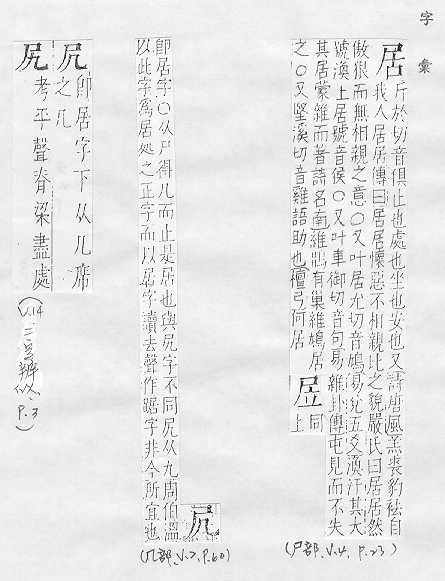 字彙
居 斤於切音俱止也處也坐也安也又詩唐風羔裘豹袪自
我人居居傳曰居居懷惡不相親比之貌嚴氏曰居居然
傲狠而無相親之意○又叶居尤切音鳩易爻五爻渙汗其大
號渙上居號音侯○又叶車御切音句易雜卦傳屯見而不失
其居蒙雜而著詩召南維鵲有巢維鳩居
之○又堅溪切音雞語助也檀弓何居
同上
(尸部、V.4, P.23)
凥
即居字○从尸得几而止是居也與尻字不同尻从九周伯溫
以此字爲居処之正字而以居字讀去聲作踞字非今所宜也
(几部、V.2, P.60)
凥 即居字下从几席
之几
尻 考平聲脊梁盡處
(V.14
P.3)